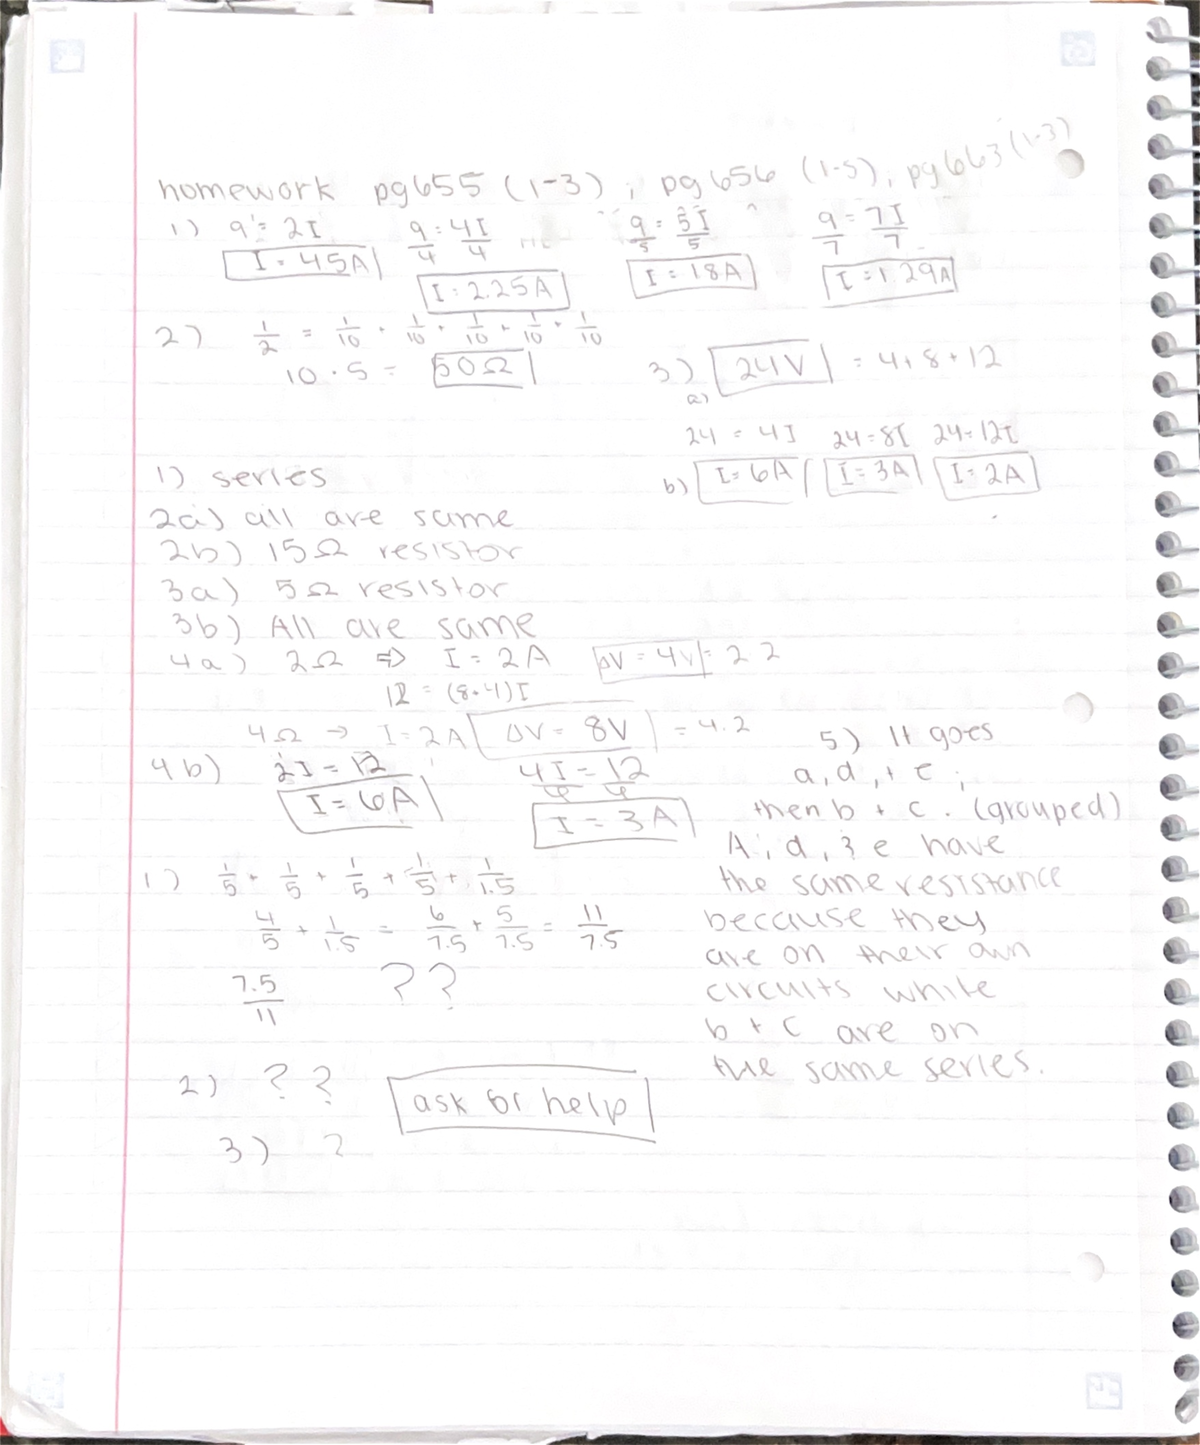 homework pg655 (1-3), pg 656 (1-5), pg663 (1-3)
1) 9 = 2I 9/4 = 4I/4 9/5 = 5I/5 9/7 = 7I/7
I = 45A I = 2.25A I = 18A I = 1.29A
2) 1/2 = 1/10 + 1/10 + 1/10 + 1/10 + 1/10
10 · 5 = 50Ω
3) 24V = 4 + 8 + 12
a)
24 = 4I 24 = 8I 24 = 12I
b) I = 6A I = 3A I = 2A
1) series
2a) all are same
2b) 15Ω resistor
3a) 5Ω resistor
3b) All are same
4a) 2Ω ⇒ I = 2A ΔV = 4V = 2 2
12 = (8·4)I
4Ω → I = 2A ΔV = 8V = 4.2
4b) 2I = 12 4I = 12
I = 6A I = 3A
5) It goes
a, d, + e,
then b + c. (grouped)
A, d, & e have
the same resistance
because they
are on their own
circuits while
b + c are on
the same series.
1) 1/5 + 1/5 + 1/5 + 1/5 + 1/1.5
4/5 + 1/1.5 = 6/7.5 + 5/7.5 = 11/7.5
7.5/11 ??
2) ??
ask for help
3) ?